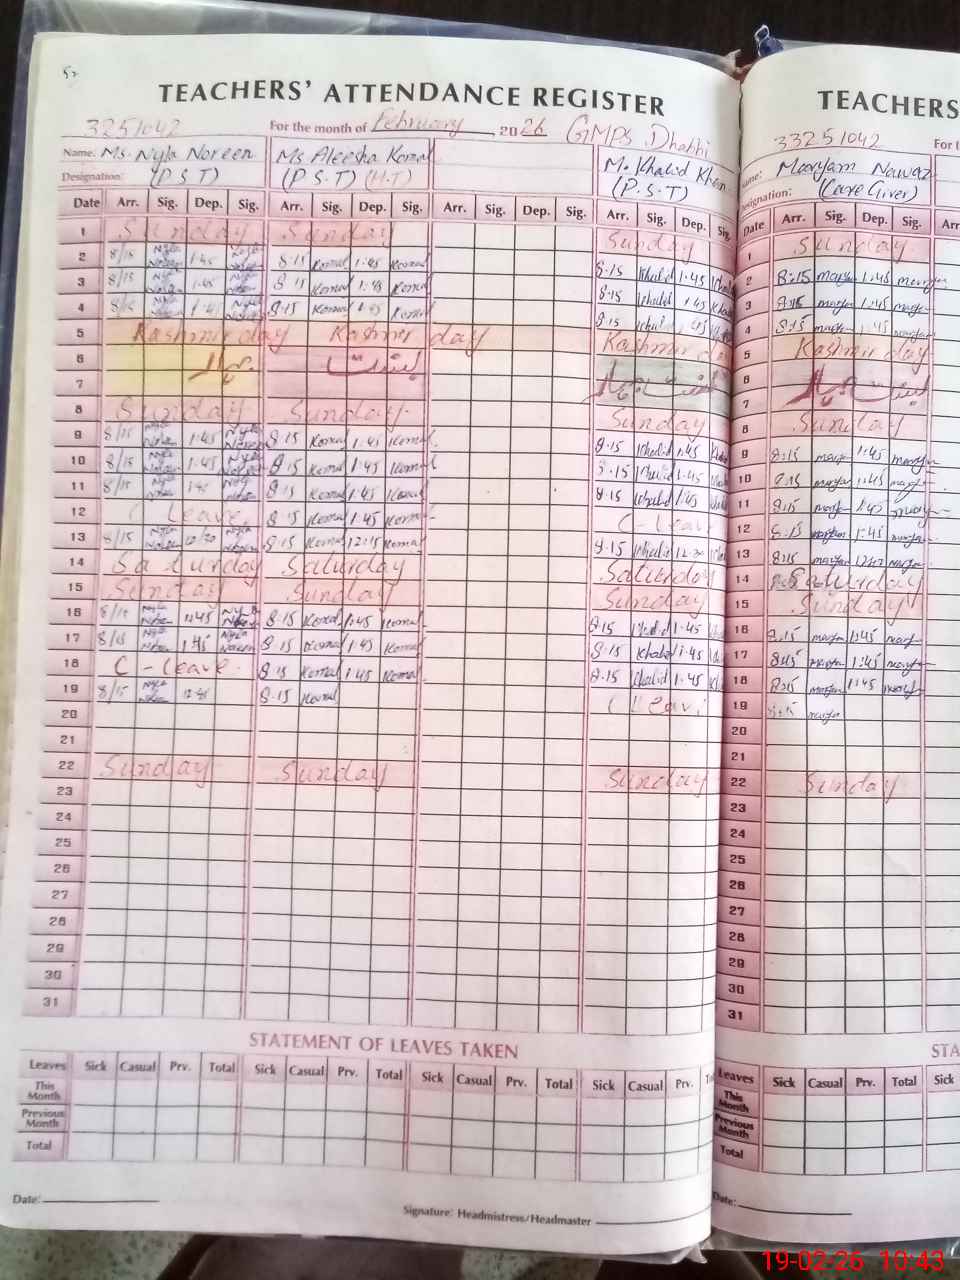 52
TEACHERS' ATTENDANCE REGISTER
3251042 For the month of February 2026 GMPS Dhakhi
Name: Ms. Nyla Noreen Ms Aleesha Komal M. Khalid Khan
Designation: (P.S.T) (P.S.T) (H.T) (P.S.T)
Date Arr. Sig. Dep. Sig. Arr. Sig. Dep. Sig. Arr. Sig. Dep. Sig. Arr. Sig. Dep. Sig.
1 Sunday Sunday Sunday
2 8/15 Nyla Noreen 1:45 Nyla Noreen 8:15 Komal 1:45 Komal 8:15 Khalid 1:45 Khalid
3 8/15 Nyla Noreen 1:45 Nyla Noreen 8:15 Komal 1:45 Komal 8:15 Khalid 1:45
4 8/15 Nyla Noreen 1:45 Nyla 8:15 Komal 1:45 Komal 8:15 Khalid
5 Kashmir day Kashmir day Kashmir day
6
7
8 Sunday Sunday Sunday
9 8/15 Nyla Noreen 1:45 Nyla Noreen 8:15 Komal 1:45 Komal 8:15 Khalid 1:45
10 8/15 Nyla Noreen 1:45 Nyla Noreen 8:15 Komal 1:45 Komal 8:15 Khalid 1:45
11 8/15 Nyla Noreen 1:45 Nyla Noreen 8:15 Komal 1:45 Komal 8:15 Khalid 1:45
12 C Leave 8:15 Komal 1:45 Komal C-Leave
13 8/15 Nyla Noreen 12/30 Nyla Noreen 8:15 Komal 12:15 Komal 8:15 Khalid
14 Saturday Saturday Saturday
15 Sunday Sunday Sunday
16 8/15 Nyla Noreen 1:45 Nyla Noreen 8:15 Komal 1:45 Komal 8:15 Khalid 1:45
17 8/15 Nyla Noreen 1:45 Nyla Noreen 8:15 Komal 1:45 Komal 8:15 Khalid 1:45
18 C-Leave 8:15 Komal 1:45 Komal 8:15 Khalid 1:45
19 8/15 Nyla Noreen 12:45 8:15 Komal C Leave
20
21
22 Sunday Sunday Sunday
23
24
25
26
27
28
29
30
31
STATEMENT OF LEAVES TAKEN
Leaves Sick Casual Prv. Total Sick Casual Prv. Total Sick Casual Prv. Total Sick Casual Prv.
This Month
Previous Month
Total
Date:
Signature: Headmistress/Headmaster
TEACHERS
33251042 For t
Name: Maryam Nawaz
Designation: (Care Giver)
Date Arr. Sig. Dep. Sig. Arr
1 Sunday
2 8:15 maryam 1:45 maryam
3 8:15 maryam 1:45 maryam
4 8:15 maryam 1:45 maryam
5 Kashmir day
6
7
8 Sunday
9 8:15 maryam 1:45 maryam
10 8:15 maryam 1:45 maryam
11 8:15 maryam 1:45 maryam
12 8:15 maryam 1:45 maryam
13 8:15 maryam maryam
14 Saturday
15 Sunday
16 8:15 maryam 1:45 maryam
17 8:15 maryam 1:45 maryam
18 8:15 maryam 1:45 maryam
19 8:15 maryam
20
21
22 Sunday
23
24
25
26
27
28
29
30
31
STA
Leaves Sick Casual Prv. Total Sick
This Month
Previous Month
Total
Date:
19-02-26 10:43